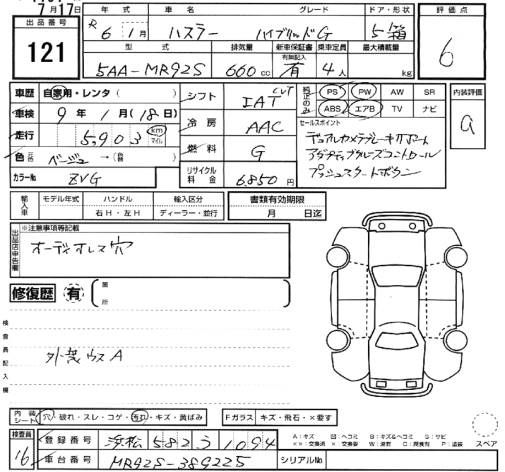 7月17日
出品番号
121
年式 車名 グレード ドア・形状
R 6 1月 ハスラー ハイブリッドG 5 箱
型式 排気量 新車保証書 有無記入 乗車定員 最大積載量
5AA-MR92S 660cc 有 4人 kg
評価点
6
車歴 自家用・レンタ( )
車検 9年1月(18日)
走行 5,903 km マイル
色 ベージュ →( )
カラーNo ZVG
シフト IAT CVT
冷房 AAC
燃料 G
リサイクル料金 6,850円
純正のみ PS PW AW SR
ABS エアB TV ナビ
セールスポイント
デュアルカメラブレーキサポート
アダプティブクルーズコントロール
プッシュスタートボタン
内装評価
a
輸入車 モデル年式 ハンドル 輸入区分
右H・左H ディーラー・並行
書類有効期限
月 日迄
出品店申告欄
※注意事項等記載
オーディオレス穴
修復歴 有 箇所
検査員記入欄
外装ウスA
内装シート 穴・破れ・スレ・コゲ・汚れ・キズ・黄ばみ
Fガラス キズ・飛石・×要す
検査員 16
登録番号 浜松 582 う 1094
車台番号 MR92S-389225
シリアルNo
A:キズ B:キズ&ヘコミ S:サビ
××:交換済 ×:交換要 W:波割 C:腐食有 P:塗装
スペア